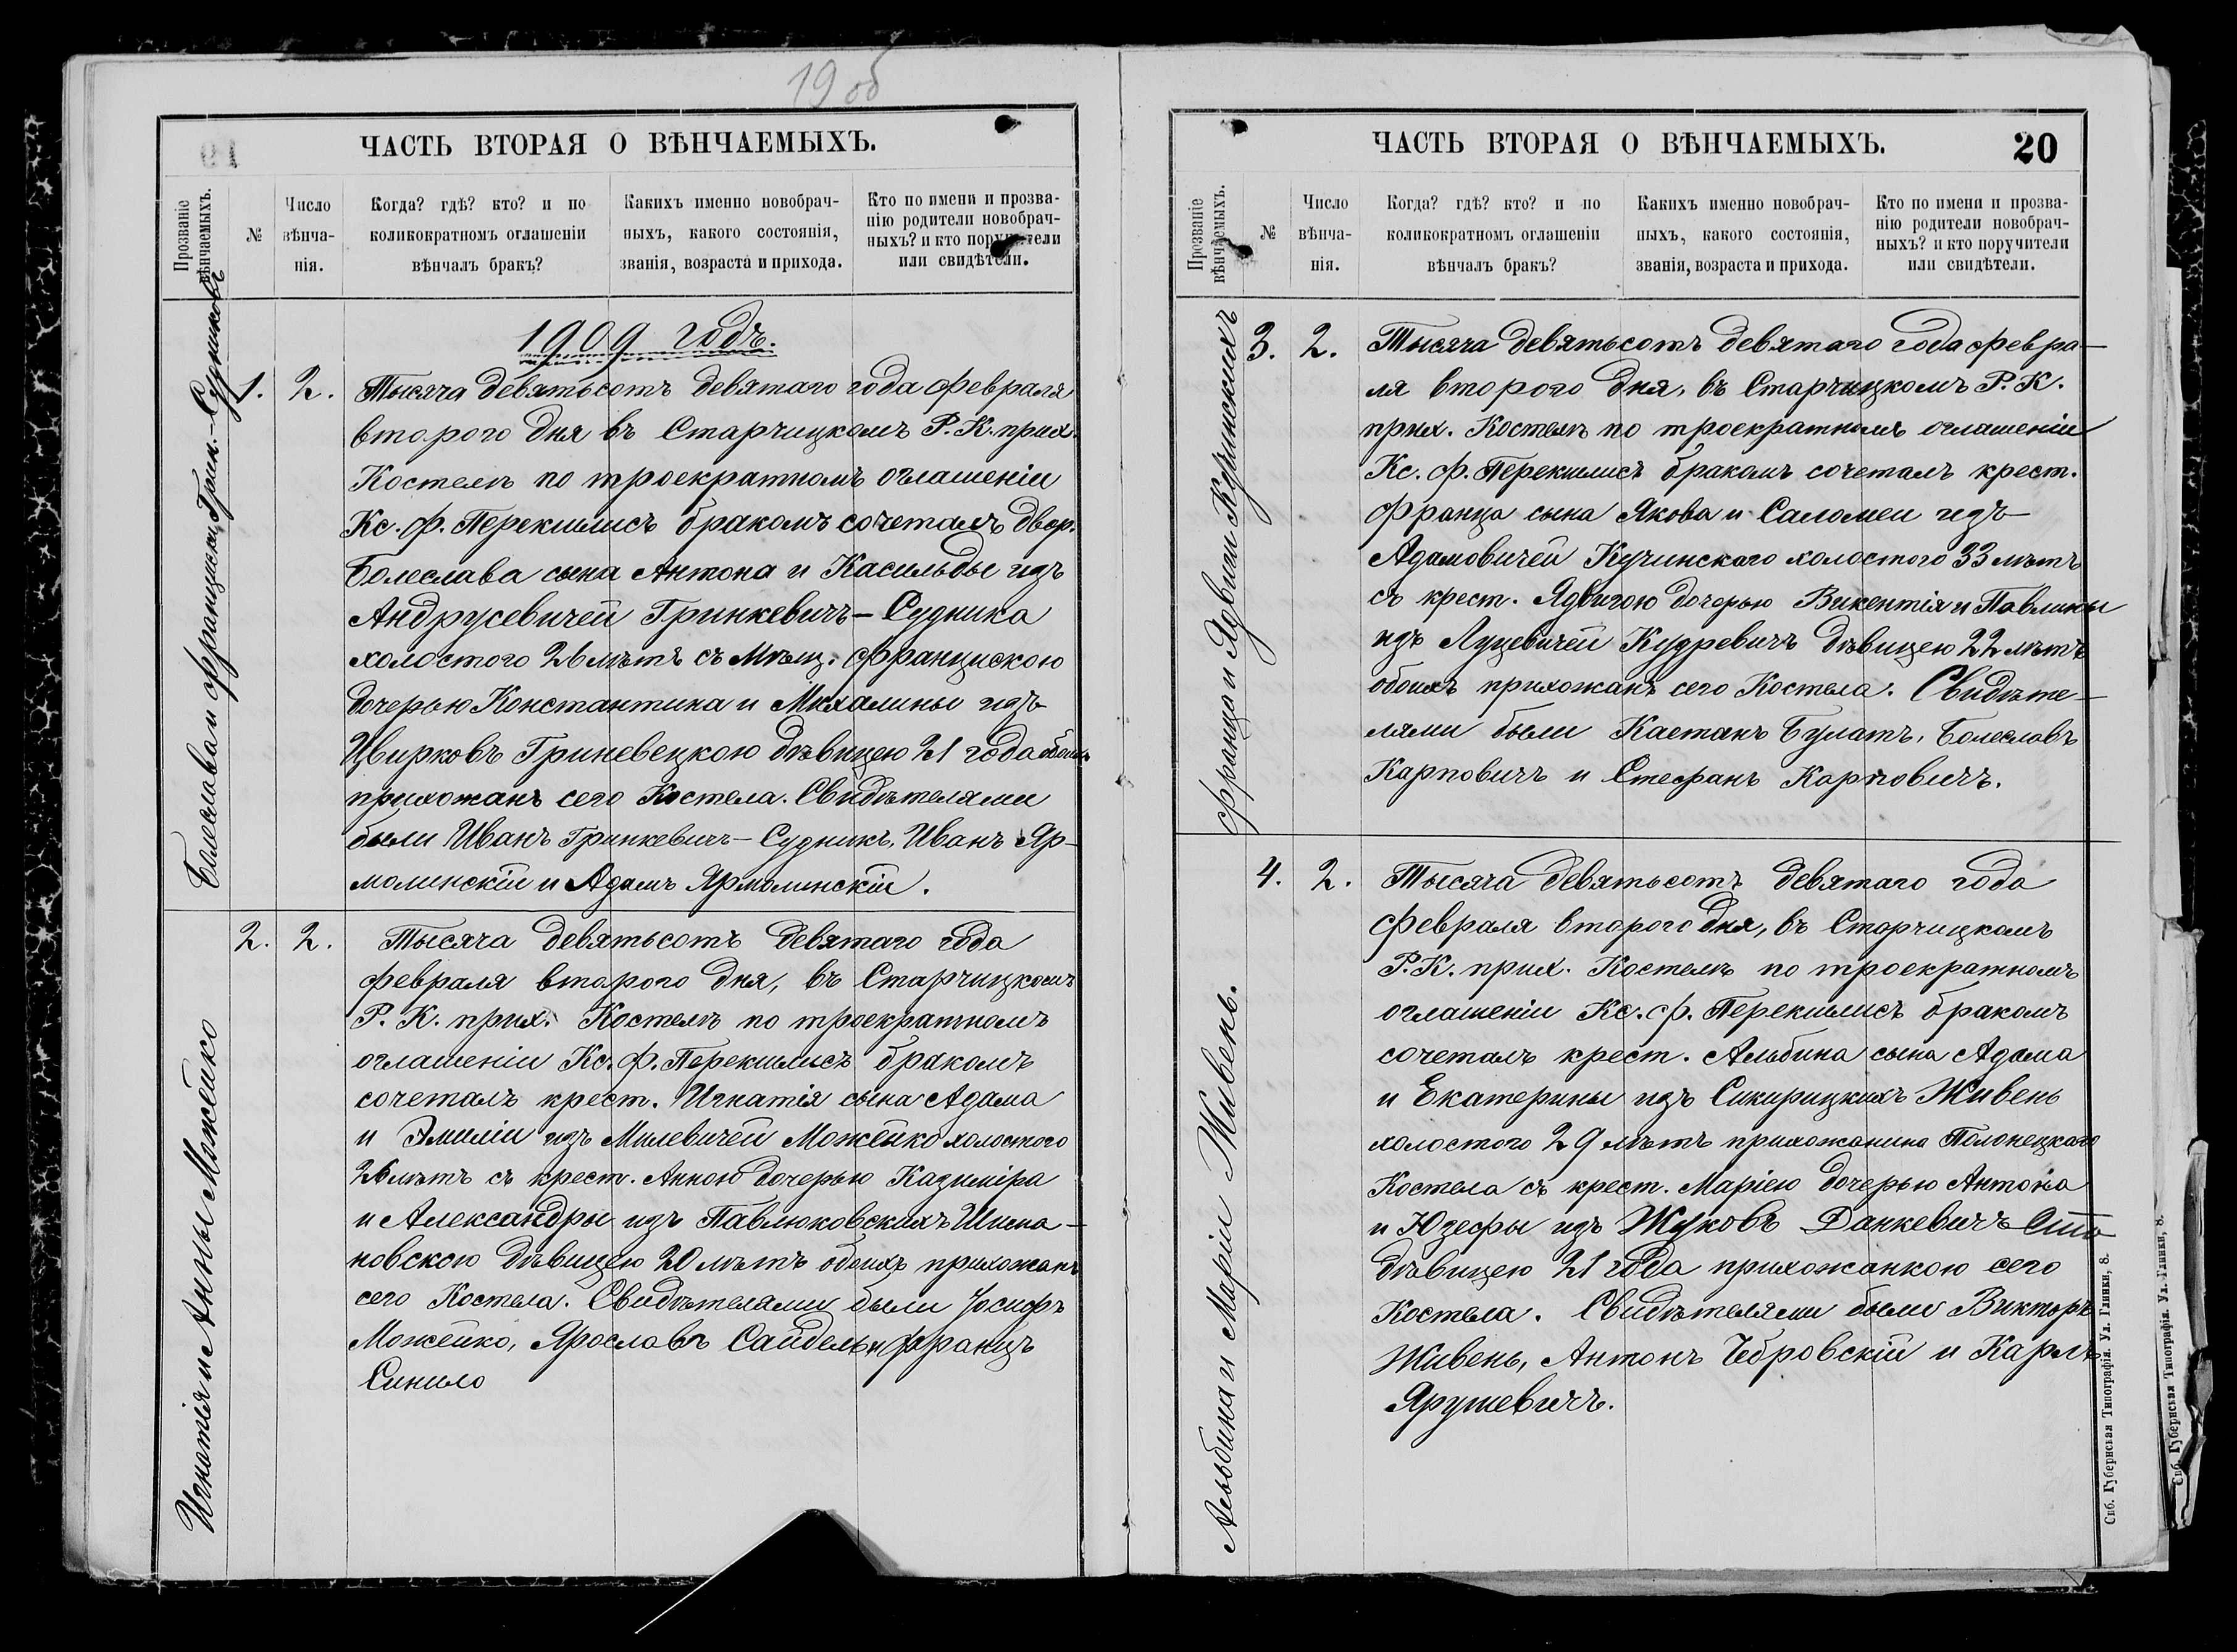 19
ЧАСТЬ ВТОРАЯ О ВѢНЧАЕМЫХЪ.
Прозваніе
вѣнчаемыхъ.
№
Число
вѣнча-
нія.
Когда? гдѣ? кто? и по
коликократномъ оглашеніи
вѣнчалъ бракъ?
Какихъ именно новобрач-
ныхъ, какого состоянія,
званія, возраста и прихода.
Кто по имени и прозва-
нію родители новобрач-
ныхъ? и кто поручители
или свидѣтели.
1909 годъ.
Болеслава и Франциски Грин.-Судниковъ
1. 2.
Тысяча девятьсотъ девятаго года февраля
второго дня въ Старчицкомъ Р. К. прих.
Костелѣ по троекратномъ оглашеніи
Кс. Ф. Перекшлисъ бракомъ сочеталъ двор.
Болеслава сына Антона и Касильды изъ
Андрусевичей Гринкевичъ-Судника
холостого 26 лѣтъ съ мѣщ. Францискою
дочерью Константина и Михалины изъ
Цвирковъ Гриневецкою дѣвицею 21 года обоихъ
прихожанъ сего Костела. Свидѣтелями
были Иванъ Гринкевичъ-Судникъ, Иванъ Яр-
молинскій и Адамъ Ярмолинскій.
Игнатія и Анны Можейко
2. 2.
Тысяча девятьсотъ девятаго года
февраля второго дня, въ Старчицкомъ
Р. К. прих. Костелѣ по троекратномъ
оглашеніи Кс. Ф. Перекшлисъ бракомъ
сочеталъ крест. Игнатія сына Адама
и Эмиліи изъ Милевичей Можейко холостого
26 лѣтъ съ крест. Анною дочерью Казиміра
и Александры изъ Павлюковскихъ Шима-
новскою дѣвицею 20 лѣтъ обоихъ прихожанъ
сего Костела. Свидѣтелями были Іосифъ
Можейко, Ярославъ Сайдель и Францъ
Синило
ЧАСТЬ ВТОРАЯ О ВѢНЧАЕМЫХЪ.
20
Прозваніе
вѣнчаемыхъ.
№
Число
вѣнча-
нія.
Когда? гдѣ? кто? и по
коликократномъ оглашеніи
вѣнчалъ бракъ?
Какихъ именно новобрач-
ныхъ, какого состоянія,
званія, возраста и прихода.
Кто по имени и прозва-
нію родители новобрач-
ныхъ? и кто поручители
или свидѣтели.
Франца и Ядвиги Кучинскихъ
3. 2.
Тысяча девятьсотъ девятаго года февра-
ля второго дня, въ Старчицкомъ Р. К.
прих. Костелѣ по троекратномъ оглашеніи
Кс. Ф. Перекшлисъ бракомъ сочеталъ крест.
Франца сына Якова и Саломеи изъ
Адамовичей Кучинскаго холостого 33 лѣтъ
съ крест. Ядвигою дочерью Викентія и Павлины
изъ Луцевичей Кудревичъ дѣвицею 22 лѣтъ
обоихъ прихожанъ сего Костела. Свидѣте-
лями были Каетанъ Булатъ, Болеславъ
Карповичъ и Стефанъ Карповичъ.
Альбина и Маріи Живень.
4. 2.
Тысяча девятьсотъ девятаго года
февраля второго дня, въ Старчицкомъ
Р. К. прих. Костелѣ по троекратномъ
оглашеніи Кс. Ф. Перекшлисъ бракомъ
сочеталъ крест. Альбина сына Адама
и Екатерины изъ Сикирицкихъ Живень
холостого 29 лѣтъ прихожанина Полонецкаго
Костела съ крест. Маріею дочерью Антона
и Юзефы изъ Жуковъ Данкевичъ
дѣвицею 21 года прихожанкою сего
Костела. Свидѣтелями были Викторъ
Живень, Антонъ Чебровскій и Карлъ
Ярушевичъ.
Спб. Губернская Типографія. Ул. Глинки, 8.
Спб. Губернская Типографія. Ул. Глинки, 8.